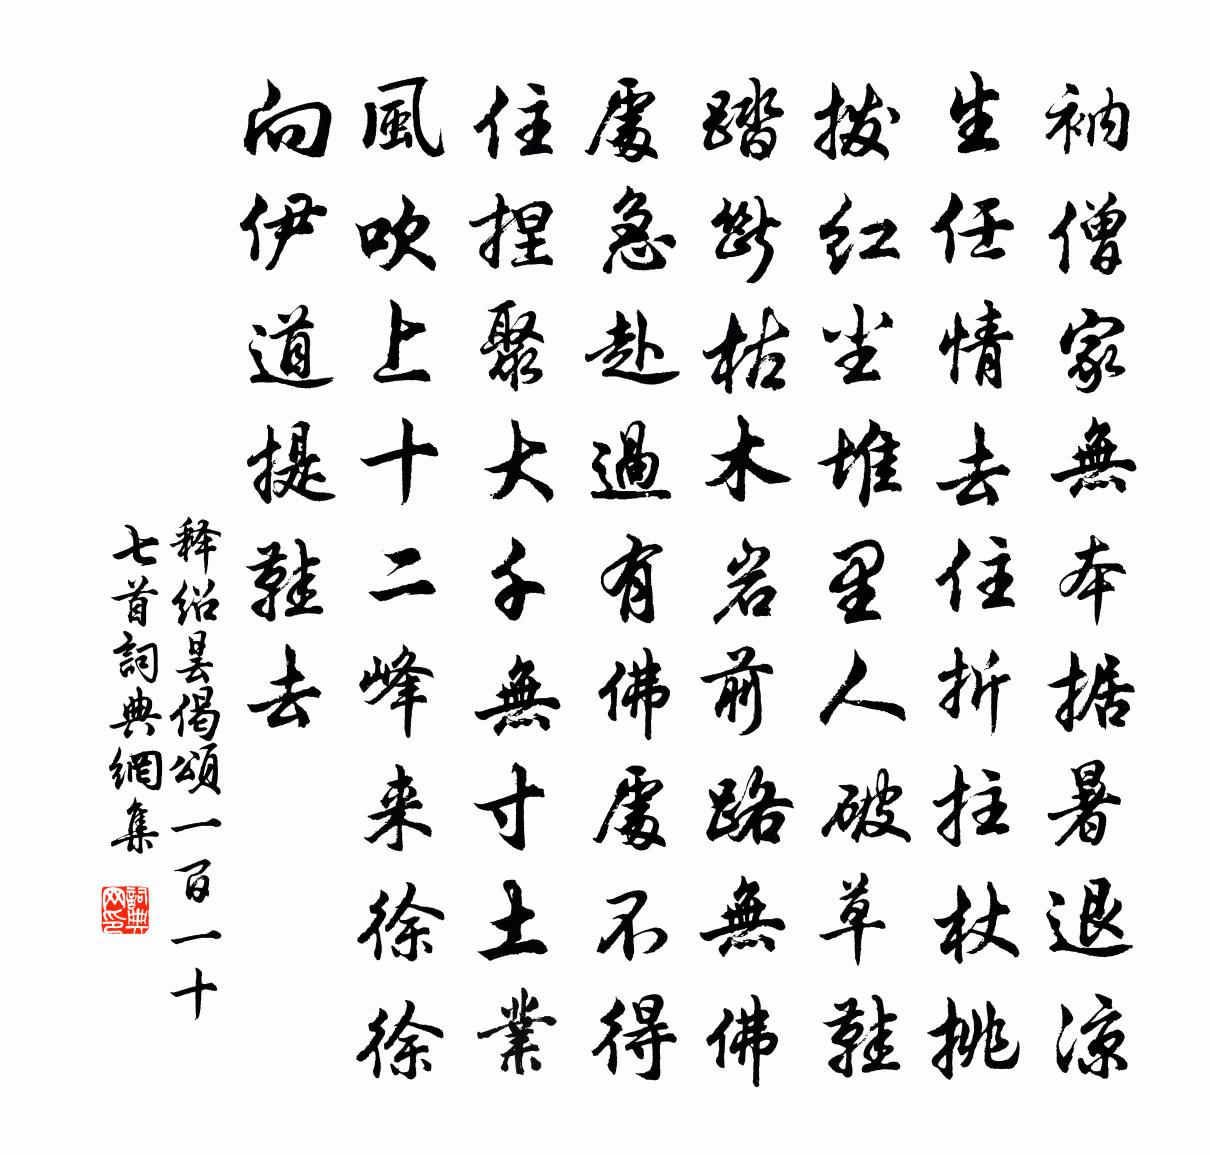 衲僧家無本據暑退涼
生任情去住折拄杖挑
拨紅尘堆里人破草鞋
踏斷枯木岩前路無佛
處急赴過有佛處不得
住捏聚大千無寸土業
風吹上十二峰来徐徐
向伊道提鞋去
释绍昙偈頌一百一十
七首詞典網集
詞典网印